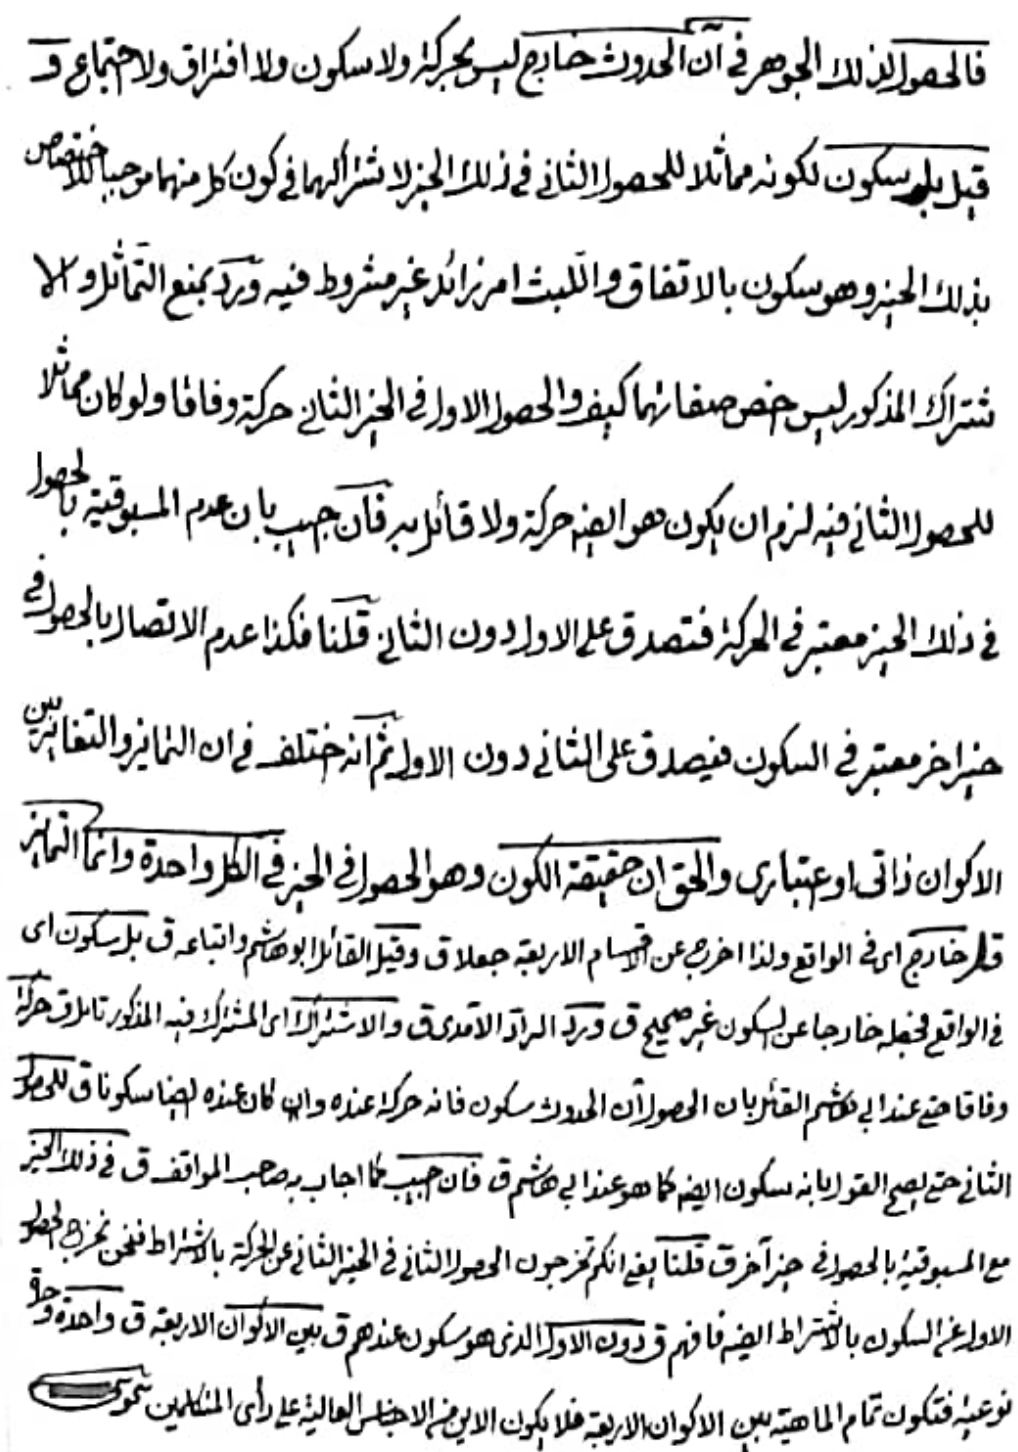 فالحصول لذلك الجوهر في آن الحدوث خارج ليس بحركة ولا سكون ولا افتراق ولا اجتماع و
قيل بل سكون لكونه مماثلا للحصول الثاني في ذلك الحيز لاشتراكهما في كون كل منهما موجبا للاختصاص
بذلك الحيز وهو سكون بالاتفاق واللبث امر زائد غير مشروط فيه ورد بمنع التماثل والا
شتراك المذكور ليس اخص صفاتهما كيف والحصول الاول في الحيز الثاني حركة وفاقا ولو كان مماثلا
للحصول الثاني فيه لزم ان يكون هو ايضا حركة ولا قائل به فان اجيب بان عدم المسبوقية بالحصول
في ذلك الحيز معتبر في الحركة فتصدق على الاول دون الثاني قلنا فكذا عدم الاتصال بالحصول في
حيز اخر معتبر في السكون فيصدق على الثاني دون الاول ثم انه اختلف في ان التمايز والتغاير بين
الاكوان ذاتي او اعتباري والحق ان حقيقة الكون وهو الحصول في الحيز في الكل واحدة وانما التمايز
قوله خارج اى في الواقع ولذا اخرج عن الاقسام الاربعة جعلا ق وقيل القائل ابو هاشم واتباعه ق بل سكون اى
في الواقع فجعله خارجا عن السكون غير صحيح ق ورد الراد الآمدى ق والاشتراك اى المشترك فيه المذكور تامل ق حركة
وفاقا حتى عند ابي هاشم القائل بان الحصول آن الحدوث سكون فانه حركة عنده وان كان عنده ايضا سكونا ق للحصول
الثاني حتى يصح القول بانه سكون ايضا كما هو عند ابي هاشم ق فان اجيب كما اجاب به صاحب المواقف ق في ذلك الحيز
مع المسبوقية بالحصول في حيز آخر ق قلنا يعنى انكم تخرجون الحصول الثاني في الحيز الثاني عن الحركة بالاشتراط فنحن نخرج الحصول
الاول عن السكون بالاشتراط ايضا فافهم ق دون الاول الذى هو سكون عندهم ق بين الاكوان الاربعة ق واحدة وحدة
نوعية فتكون تمام الماهية بين الاكوان الاربعة فلا يكون الاين من الاجناس العالية على رأى المتكلمين